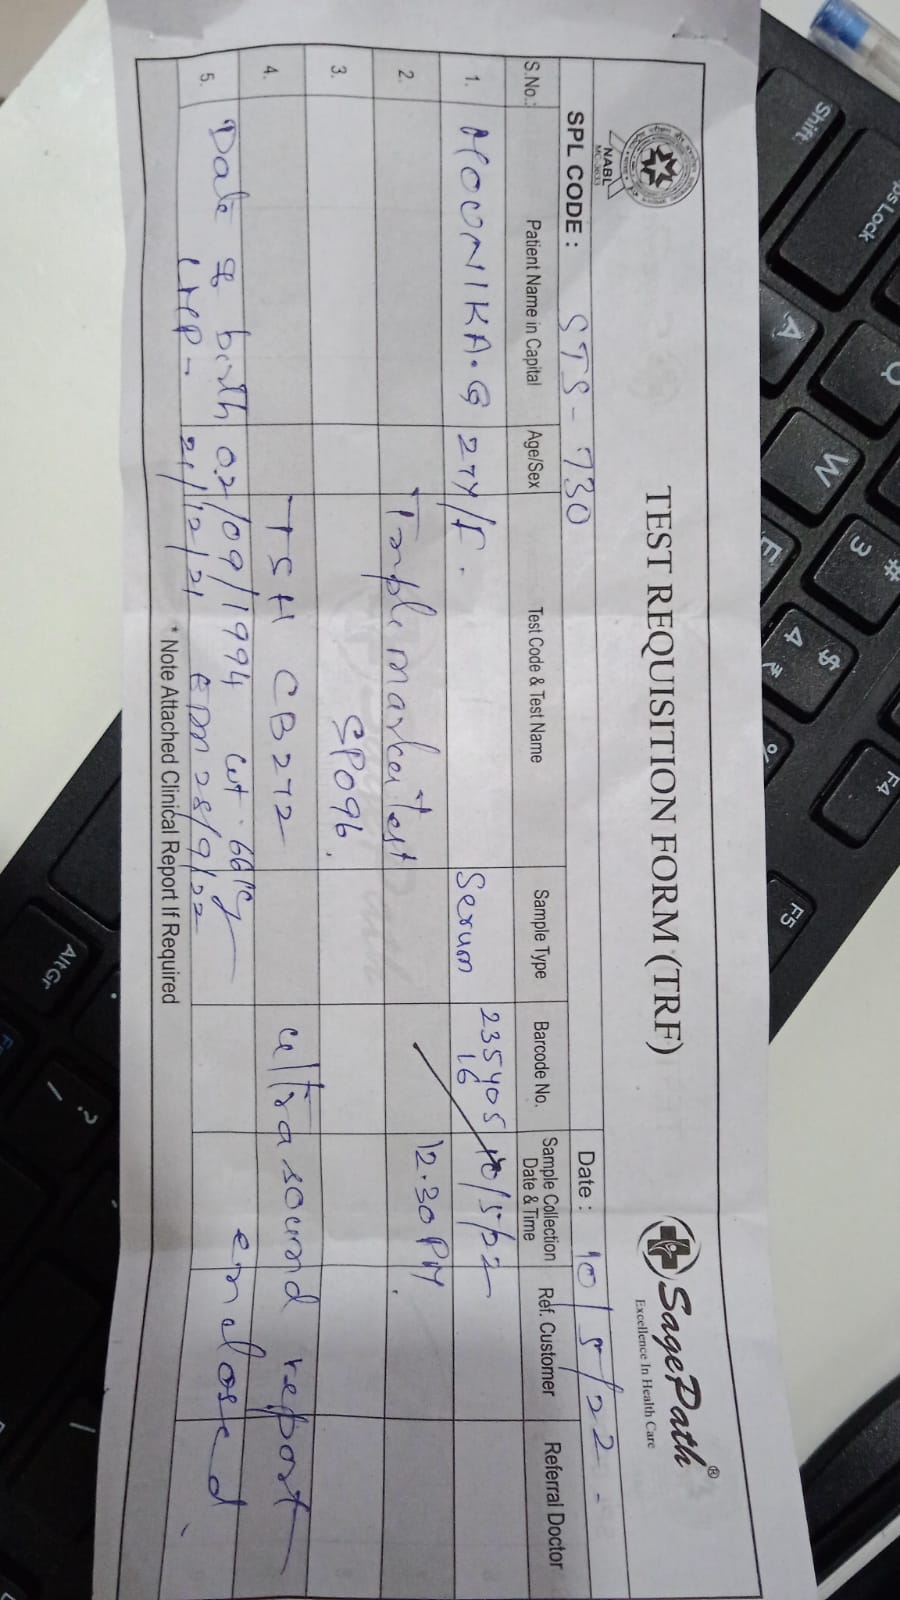 TEST REQUISITION FORM (TRF)
NABL
MC-3633
SagePath®
Excellence In Health Care
SPL CODE : STS-730
Date : 10/5/22
S.No.: Patient Name in Capital Age/Sex Test Code & Test Name Sample Type Barcode No. Sample Collection Date & Time Ref. Customer Referral Doctor
1. MOUNIKA.G 27Y/F. Serum 23540516 10/5/22
2. Triple marker Test 12.30 PM
3. SP096.
4. TSH CB272 ultrasound report
5. Date of birth 02/09/1994 wt. 66kg enclosed
LMP- 21/12/21 EDD 28/9/22
* Note Attached Clinical Report If Required
Shift
Caps Lock
A
Q
W
E
3
#
4
$
₹
%
F4
F5
Alt Gr
?
/